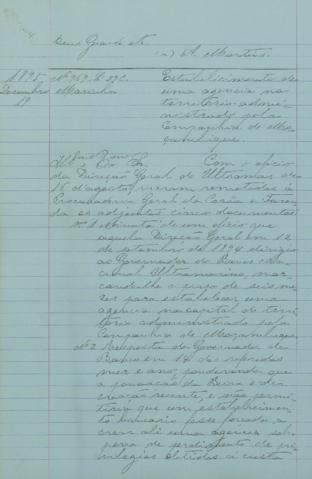 Deus Guarde etc
(a) A. Martins.
1895 Nº 769. L. 27 C. Estabelecimento de
Dezembro Marinha uma agencia no
19 territorio admi-
nistrado pela
Companhia de Mo-
çambique.
Illmo e Exmo Sr. Com o officio
da Direcção Geral do Ultramar de
16 d'agosto, vieram remettidos á
Procuradoria Geral da Corôa e Fazen-
da os adjuntos cinco documentos:
nº 1 Minuta de um officio que
aquella Direcção Geral em 12
de setembro de 1894 dirigio
ao Governador do Banco Na-
cional Ultramarino, mar-
cando-lhe o praso de seis me-
zes para estabelecer uma
agencia na capital do terri-
torio administrado pela
Companhia de Moçambique
Nº 2 Resposta do Governador do
Banco em 14 dos referidos
mez e anno, ponderando que
a povoação da Beira é de
creação recente, e não permi-
ttiria que um estabelecimen-
to bancario fosse forçado a
crear ali uma agencia sob
pena de perdimento de pri-
vilegios obtidos á custa